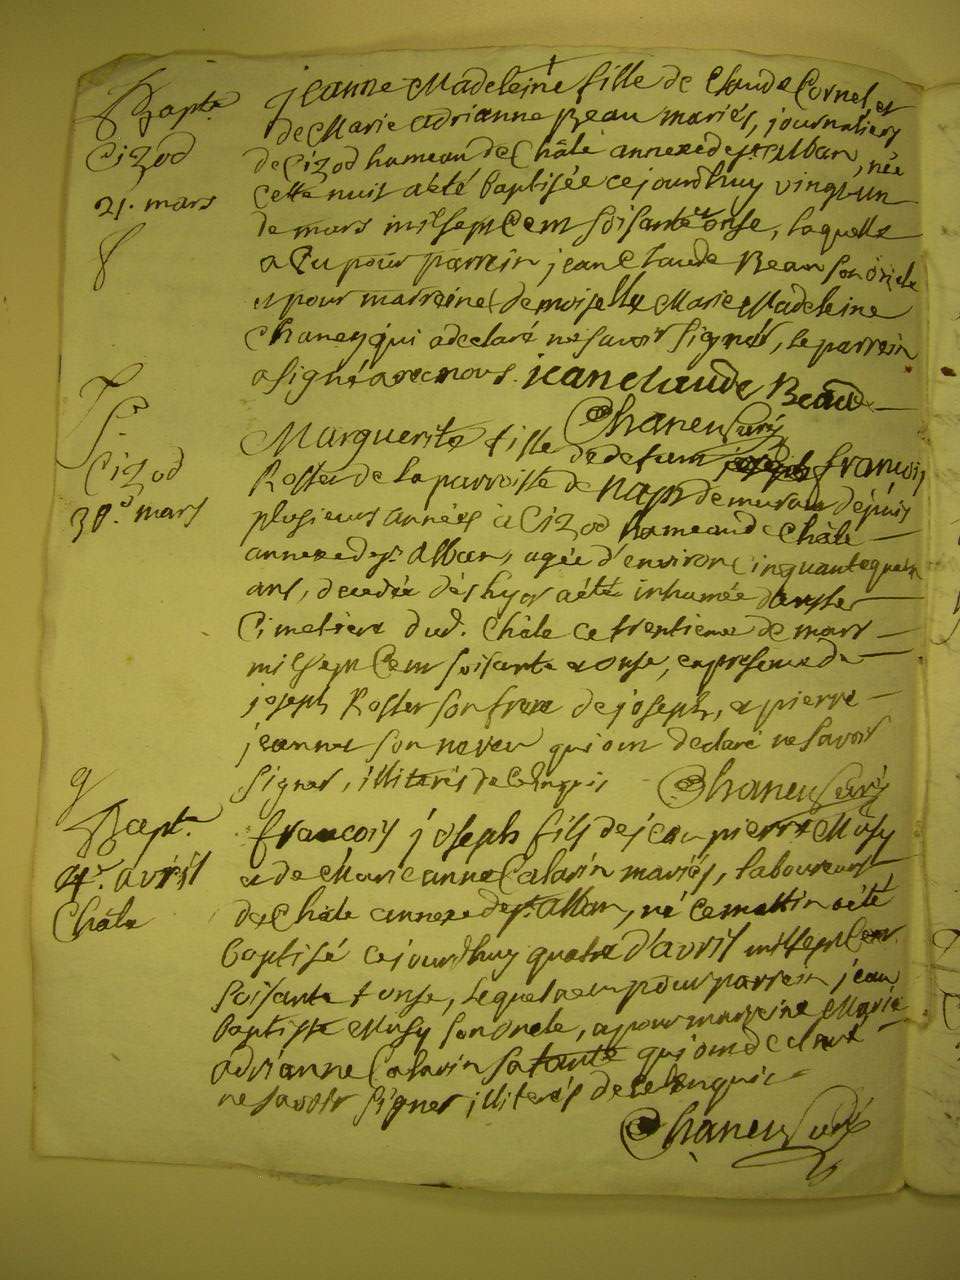 Bapt.
Cizod
21. mars
8
jeanne Madeleine fille de Claude Cornel, et
de Marie adrianne Beau mariés, journaliers
de Cizod hameau de Châle annexe de st. Alban, née
cette nuit a été baptisée cejourdhuy vingt un
de mars mil sept cent soisante et onse, laquelle
a eu pour parrein jean Claude Beau son oncle
et pour marreine demoiselle Marie Madeleine
Chaney qui a declaré ne savoir signer, le parrein
a signé avec nous. jean claude Beaud
Chaney Curé
Sr.
Cizod
30e. mars
Marguerite fille de defunt françois
Roster de la parroisse de demeurant depuis
plusieurs années à Cizod hameau de Châle
annexe de st. Alban, agée d'environ cinquante quatre
ans, decedée dès hyer a été inhumée dans le
Cimetiere dud. Châle ce trentieme de mars
mil sept cent soisante et onse, en presence de
joseph Roster son frere de joseph, et pierre
jeannet son neveu qui ont declaré ne savoir
signer, illiterés de ce enquis Chaney Curé
9
Bapt.
4e. avril
Châle
françois joseph fils de jean pierre Musy
et de Marie anne Calarin mariés, laboureurs
de Châle annexe de st. Alban, né ce mattin a été
baptisé cejourdhuy quatre d'avril mil sept cent
soisante et onse, lequel a eu pour parrein jean
baptiste Musy son oncle, et pour marreine Marie
adrianne Calarin sa tante qui ont declaré
ne savoir signer illiterés de ce enquis
Chaney Curé